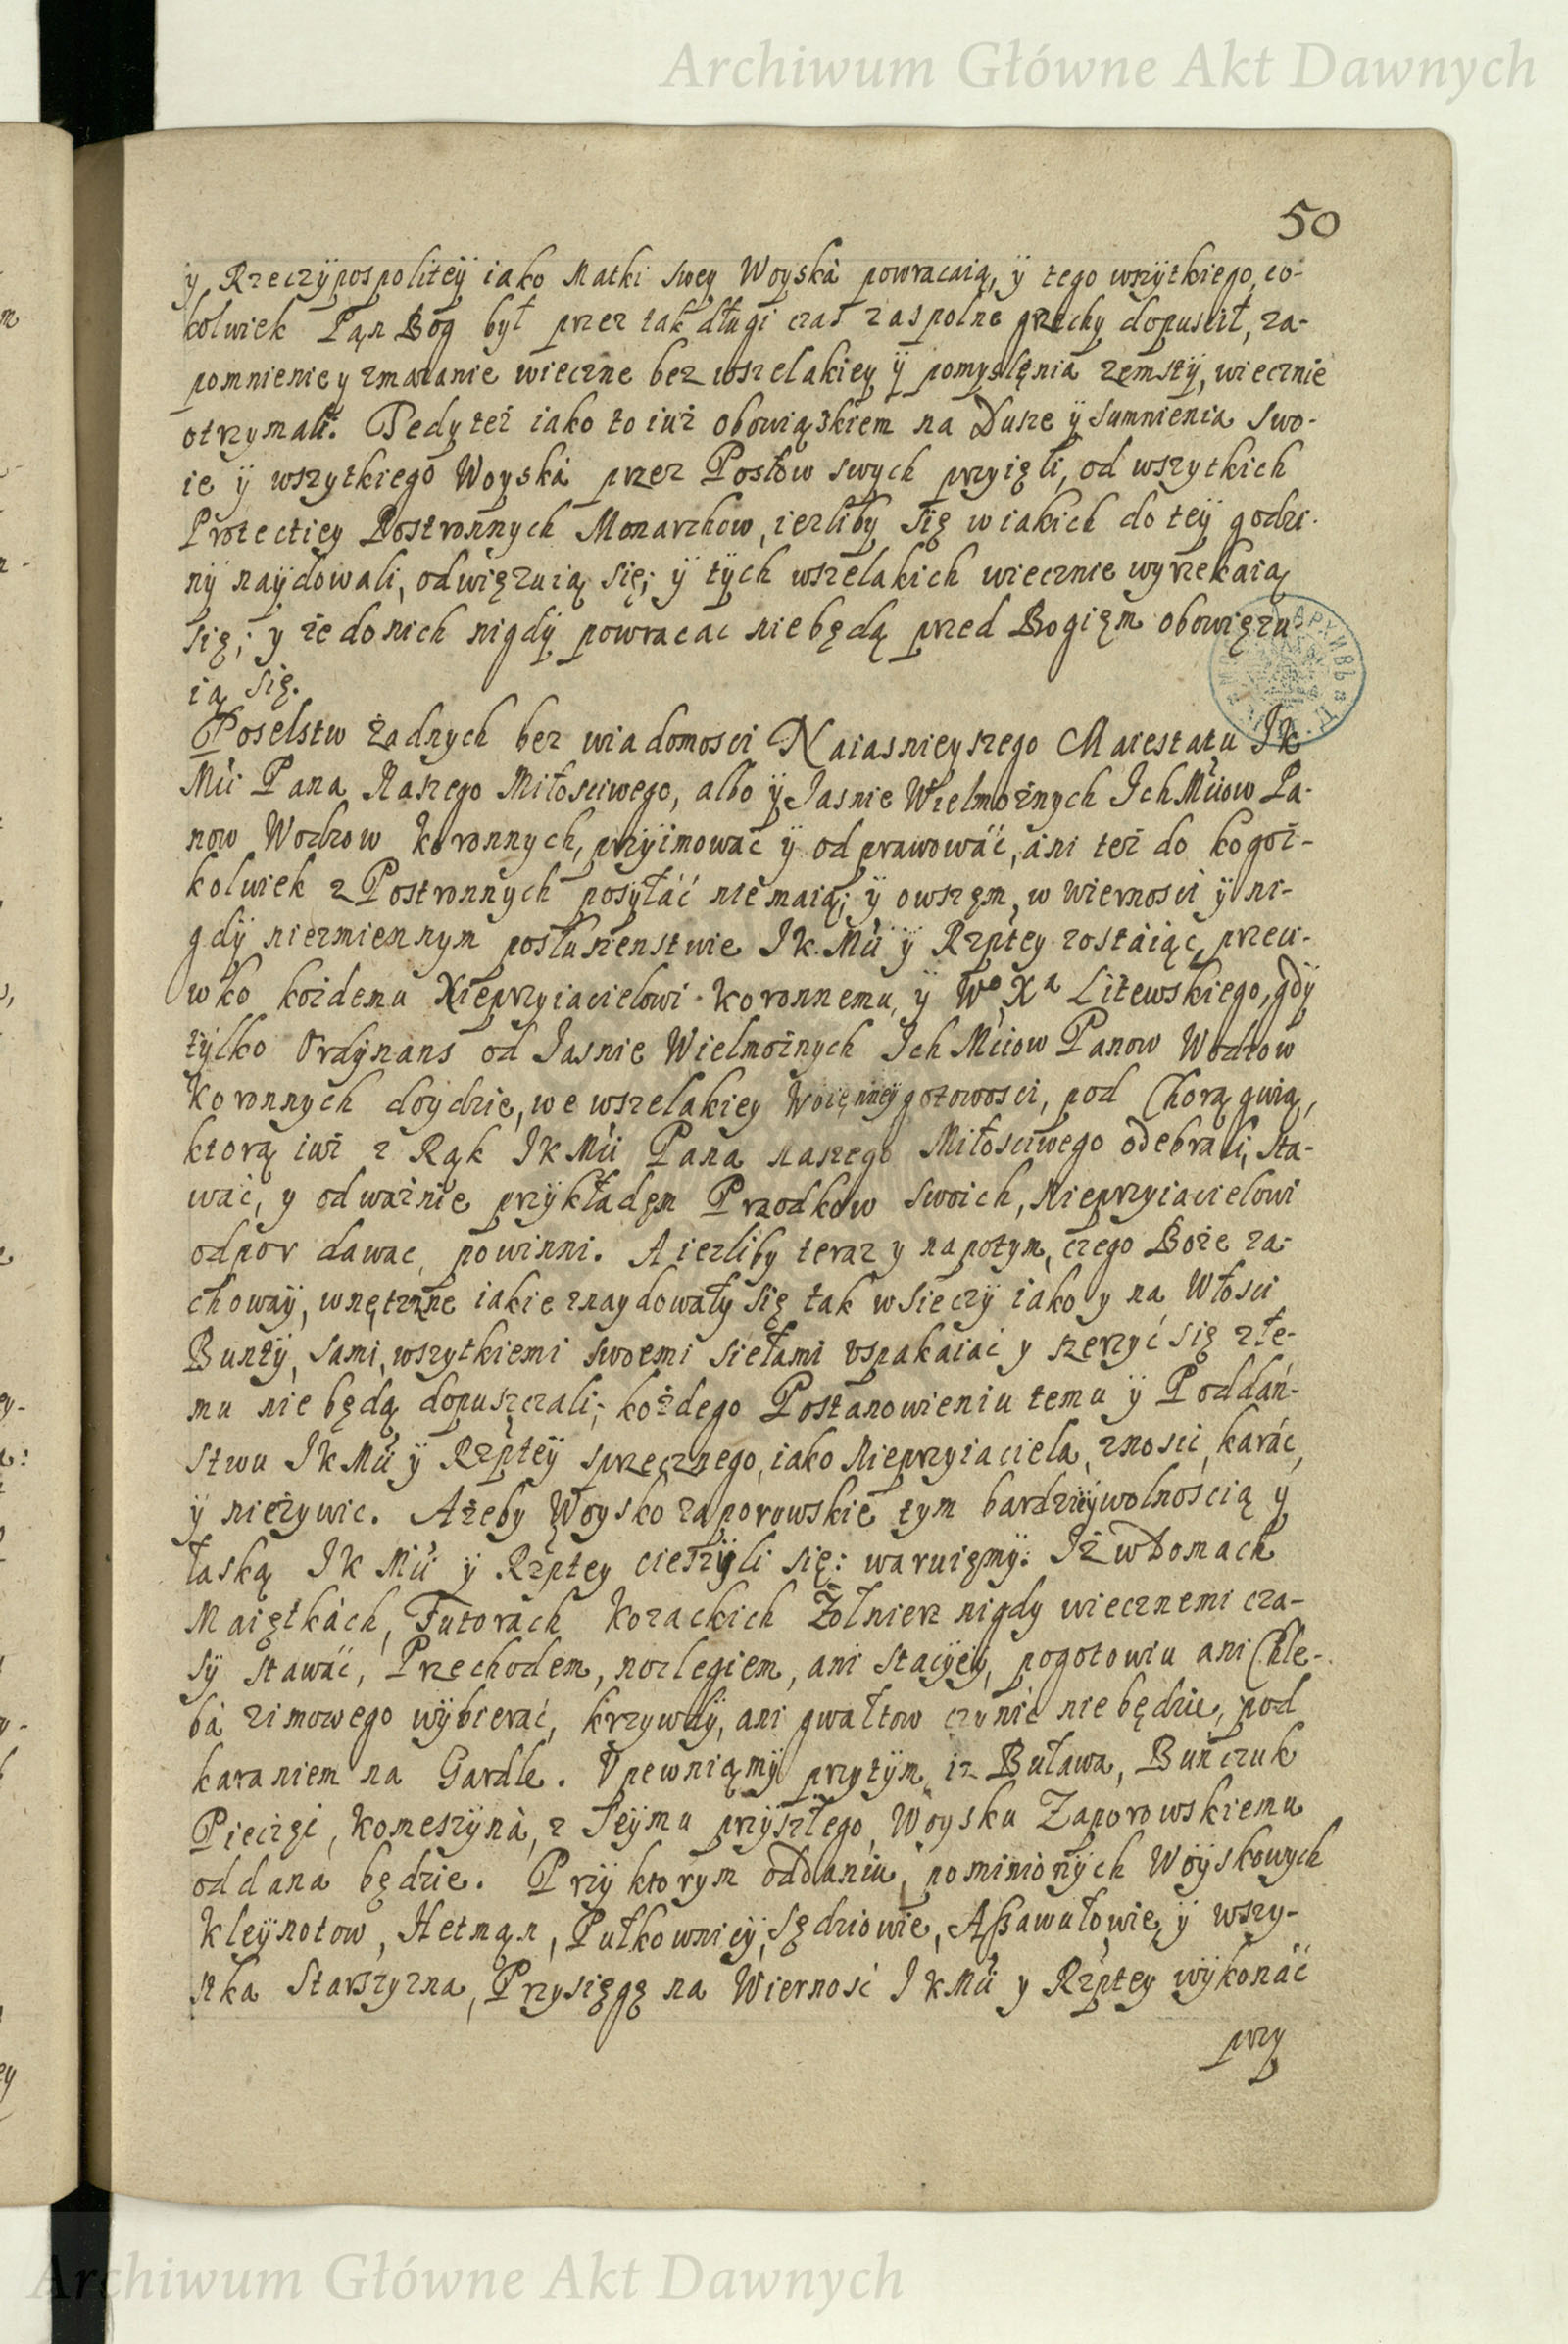 Archiwum Główne Akt Dawnych
50
y Rzeczÿpospoliteÿ iako Matki swey Woyska powracaią, ÿ tego wszÿtkiego, co-
kolwiek Pąn Bog był przez tak długi czas za spolne grzechy dopuscił, za-
pomnienie y zmazanie wieczne bez wszelakiey ÿ pomyslęnia zemstÿ, wiecznie
otrzymali. Tedy też iako to iuż obowiązkiem na Dusze ÿ sumnienia swo-
ie ÿ wszytkiego Woyska przez Posłow swych przyięli, od wszytkich
Protectiey Postronnych Monarchow, iezliby się w iakich do teÿ godzi-
nÿ naÿdowali, odwięzuią się; ÿ tÿch wszelakich wiecznie wyrzekaią
się; y że do nich nigdÿ powracac nie będą przed Bogięm obowięzu
ią się.
Poselstw żadnych bez wiadomosci Naiasnieyszego Maiestatu Jk
Mći Pana Naszego Miłosciwego, albo ÿ Jasnie Wielmożnych Jch Mciow Pa-
now Wodzow koronnych, przÿimować ÿ odprawować, ani też do kogoż-
kolwiek z Postronnych posÿłáć nie maią; ÿ owszęm, w wiernosci ÿ ni-
gdÿ niezmiennym posłuszenstwie Jk. Mci ÿ Rzptey zostáiąc, przeci-
wko kożdemu Nieprzyiacielowi koronnemu, ÿ Wo Xa Litewskiego, gdÿ
tÿlko Ordÿnans od Jasnie Wielmożnych Jch Mciow Panow Wodzow
Koronnych doÿdzie, we wszelakiey Woięnneÿ gotowosci, pod Chorągwią,
ktorą iuż z Rąk Jk Mci Pana naszego Miłosciwego odebrali, sta-
wać, y odważnie przÿkładęm Przodkow swoich, Nieprzyiacielowi
odpor dawac, powinni. A iezliby teraz y napotym, czego Boże za-
chowaÿ, wnętrzne iakie znaydowałÿ się tak w Sieczÿ iako y na Włosci
Buntÿ, sami, wszytkiemi swoemi siełami uspakaiać y szerzyć się złe-
mu nie będą dopuszczali; kożdego Postanowieniu temu ÿ Poddań-
stwu Jk Mci ÿ Rzpteÿ sprzecznego, iako Nieprzyiaciela, znosić, karác,
ÿ nieżywic. Ażeby Woysko zaporowskie tym bardzieÿ wolnoscią y
łaską Jk Mci ÿ Rzptey cieszÿli się: waruięmÿ: Jż w Domach
Maiętkách, Futorach Kozackich Żołnierz nigdy wiecznemi cza-
sÿ stawać, Przechodem, noclegiem, ani stacÿeÿ, pogotowiu ani Chle-
ba zimowego wÿbieráć, krzywdÿ, ani gwałtow czynić nie będzie, pod
karaniem na Gardle. Upewniąmÿ przytÿm, iz Buława, Buńczuk
Pieczęć, komeszÿna, z Seÿmu przÿszłego, Woysku Zaporowskiemu
oddana będzie. Przÿ ktorym oddaniu, pominionÿch Woÿskowych
kleÿnotow, Hetmąn, Pułkownicÿ, Sędziowie, Assawułowie, ÿ wszy-
stka Starszyzna, Przysięgę na Wiernosć Jk Mci y Rzptey wÿkonáć
przy
Archiwum Główne Akt Dawnych